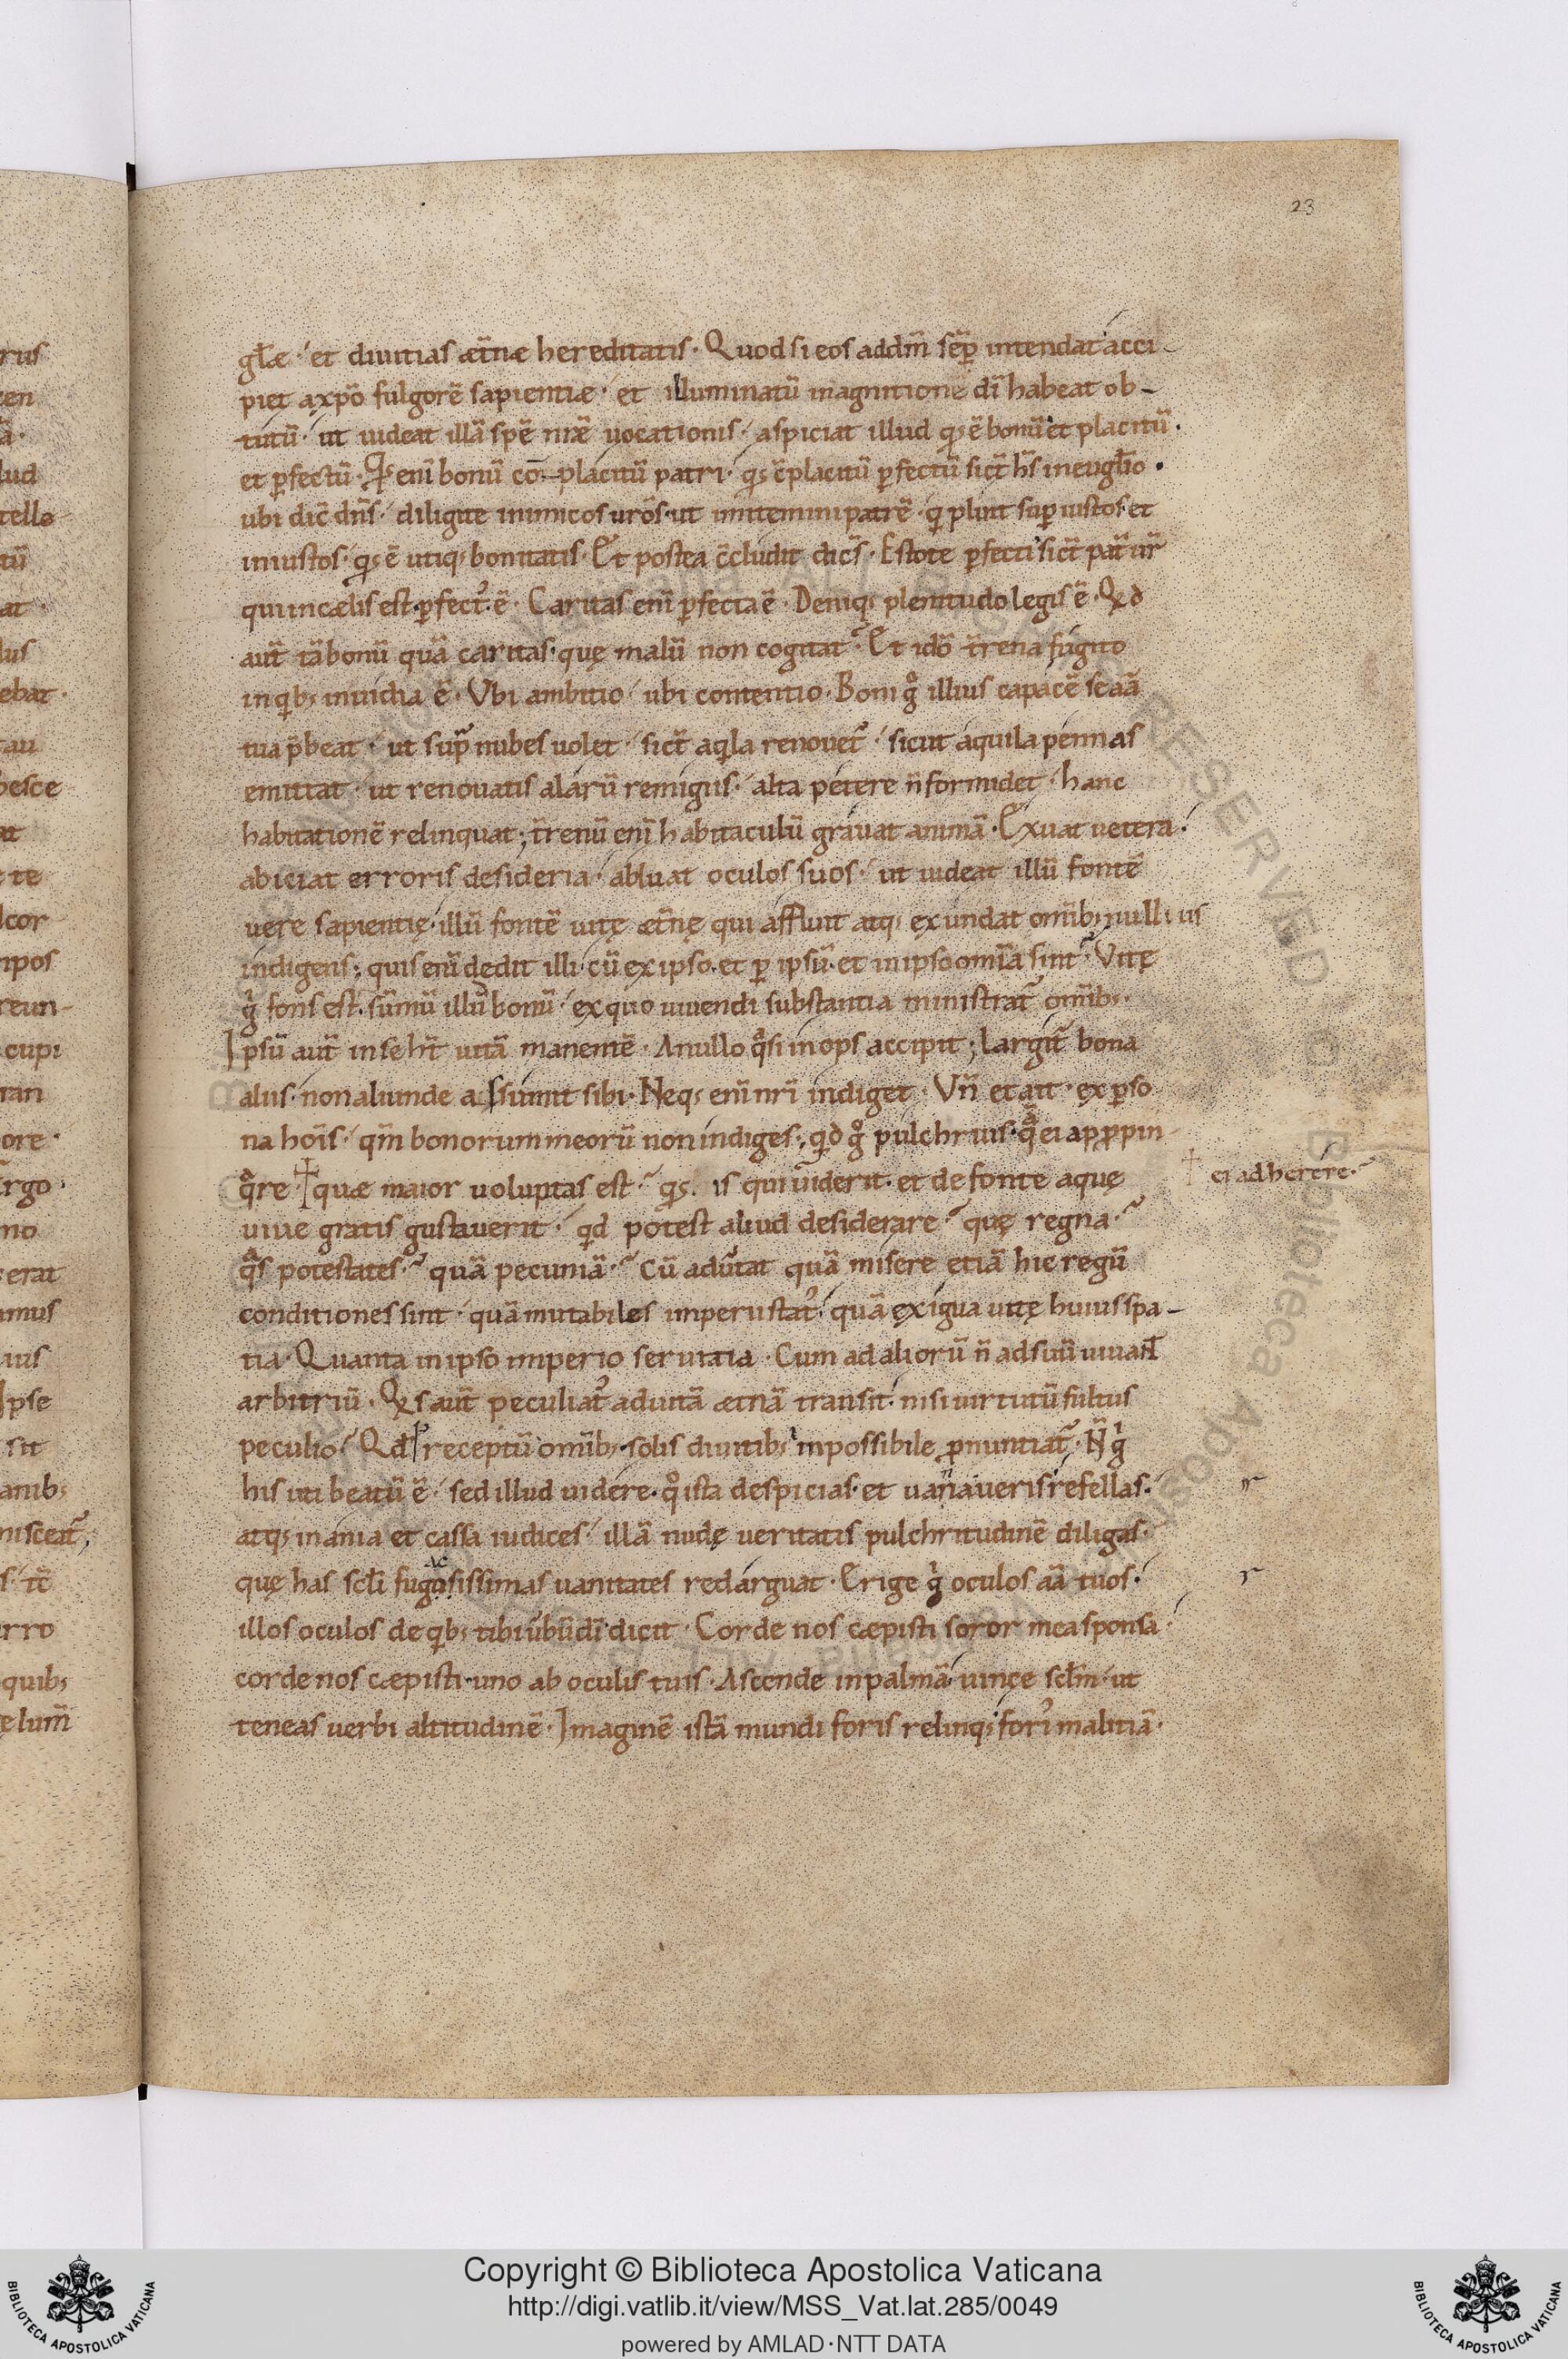 23
gl̅æ · et diuitias æt̅næ hereditatis · Quod si eos addm̅ sēp intendat acci-
piet axp̅o fulgorē sapientiæ · et illuminatū inagnitione dī habeat ob-
tutū · ut uideat illā spē nr̅æ uocationis · aspiciat illud qđ ē bonū et placitū ·
et pfectū · Qđ eni̅ bonū co̅-placitū patri · qđ c̅placitū pfectū sict̅ hēs ineuglio ·
ubi dic̅ dn̅s · diligite inimicos uro̅s · ut imitemini patrē · qi pluit sup iustos · et
iniustos · qđ ē utiq; bonitatis · Et postea c̅cludit dice̅s · Estote pfecti sict̅ pat̅ ur̅
qui incælis est · pfect᾿ ē · Caritas eni̅ pfecta ē · Deniq; plenitudo legis ē · Qd
aut̅ tā bonū quā caritas · quę malū non cogitat · Et ido̅ t̅rena fugito
inqib; inuidia ē · Vbi ambitio · ubi contentio · Boni gͦ illius capacē se aā
tua p̅beat · ut sup nubes uolet · sict̅ aqila renouet᾿ · sicut aquila pennas
emittat · ut renouatis alarū remigiis · alta petere n̅ formidet · hanc
habitationē relinquat ; t̅renū eni̅ habitaculū grauat animā · Exuat uetera ·
abiciat erroris desideria · abluat oculos suos · ut uideat illū fontē
uere sapientię · illū fontē uitę æt̅nę qui affluit atq; exundat omi̅b; nullius
indigens ; quis eni̅ dedit illi · cū ex ipso · et p ipsū · et inipso omi̅a sint · Vitę
gi fons est · sūmū illud bonū · ex quo uiuendi substantia ministrat᾿ omi̅b; ·
Ipsū aut̅ inse ht̅ uitā manentē · Anullo qͣsi inops accipit ; largit᾿ bona
aliis · non aliunde assumit sibi · Neq; eni̅ nr̅i indiget · Vn̅ et ait · ex pso
na hoi̅s · qm̅ bonorum meorū non indiges ; qid gͦ pulchrius · qͣ ei appropin-
qͣre † quæ maior uoluptas est · qđ · is qui uiderit · et de fonte aquę
† ei adherere ·
uiue gratis gustauerit · qid potest aliud desiderare · quę regna ·
qͣs potestates · quā pecuniā · Cū aduertat quā misere etiā hic regū
conditiones sint · quā mutabiles imperii stat᾿ · quā exigua uitę huius spa-
tia · Quanta in ipso imperio seruitia · Cum ad aliorū n̅ ad suū uiuant
arbitriū · Qs aut̅ peculiat᾿ ad uitā æt̅nā transit · nisi uirtutū fultus
peculio · Qd receptū omi̅b; · solis diuitib; inpossibile pnuntiat᾿ · N̅ gi
his uti beatū ē · sed illud uidere · qͦ ista despicias · et uana ueris refellas ·
atq; inania et cassa iudices · illā nudę ueritatis pulchritudinē diligas ·
quę has scl̅i fugosissimas uanitates redarguat · Erige gi oculos aā tuos ·
ac
illos oculos de qib; tibi ub̅ū dī dicit · Corde nos cæpisti soror mea sponsa ·
corde nos cæpisti · uno ab oculis tuis · Ascende inpalmā · uince scl̅m · ut
teneas uerbi altitudinē · Imaginē istā mundi foris relinq; fori᾿ malitiā ·
Copyright © Biblioteca Apostolica Vaticana
http://digi.vatlib.it/view/MSS_Vat.lat.285/0049
powered by AMLAD·NTT DATA